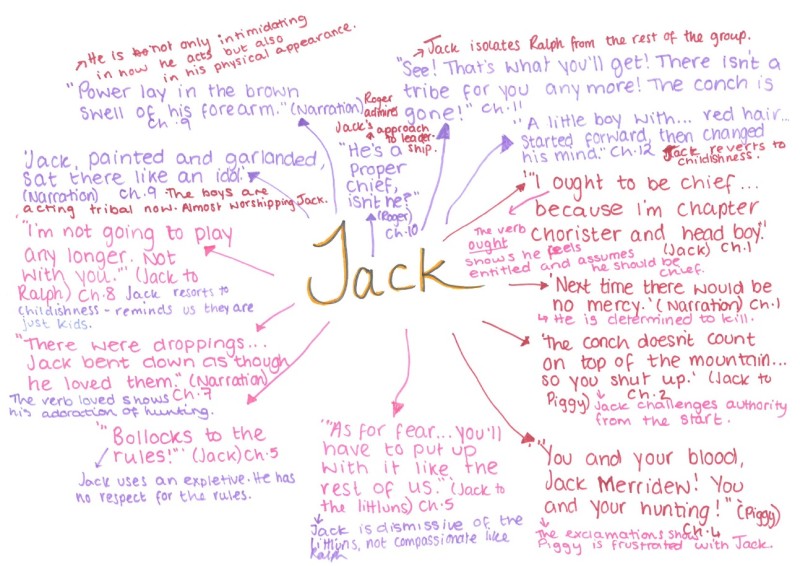 He is not only intimidating
in how he acts but also
in his physical appearance.
"Power lay in the brown
swell of his forearm." (Narration)
Ch.9
Jack isolates Ralph from the rest of the group.
"See! That's what you'll get! There isn't a
tribe for you any more! The conch is
gone!" Ch.11
Roger
admires
Jack's approach
to leader-
ship.
"He's a
Proper
Chief,
isn't he?"
(Roger)
Ch.10
"A little boy with... red hair..
Started forward, then changed
his mind." Ch.12 Jack reverts to
childishness.
'Jack, painted and garlanded,
sat there like an idol.'
(Narration) Ch.9 The boys are
acting tribal now. Almost worshipping Jack.
"I ought to be chief...
because I'm chapter
chorister and head boy."
(Jack) Ch.1
The verb
ought
shows he feels
entitled and assumes
he should be
chief.
"'I'm not going to play
any longer. Not
with you.'" (Jack to
Ralph) Ch.8 Jack resorts to
childishness - reminds us they are
just kids.
Jack
'Next time there would be
no mercy.' (Narration) Ch.1
He is determined to kill.
"There were droppings...
Jack bent down as though
he loved them." (Narration)
Ch.7
The verb loved shows
his adoration of hunting.
'The conch doesn't count
on top of the mountain...
so you shut up.' (Jack to
Piggy) Ch.2
Jack challenges authority
from the start.
"'Bollocks to the
rules!'" (Jack) Ch.5
Jack uses an expletive. He has
no respect for the rules.
"'As for fear... you'll
have to put up
with it like the
rest of us.' (Jack to
the littluns) Ch.5
Jack is dismissive of the
littluns, not compassionate like
Ralph
"You and your blood,
Jack Merridew! You
and your hunting!" (Piggy)
Ch.4
The exclamations show
Piggy is frustrated with Jack.